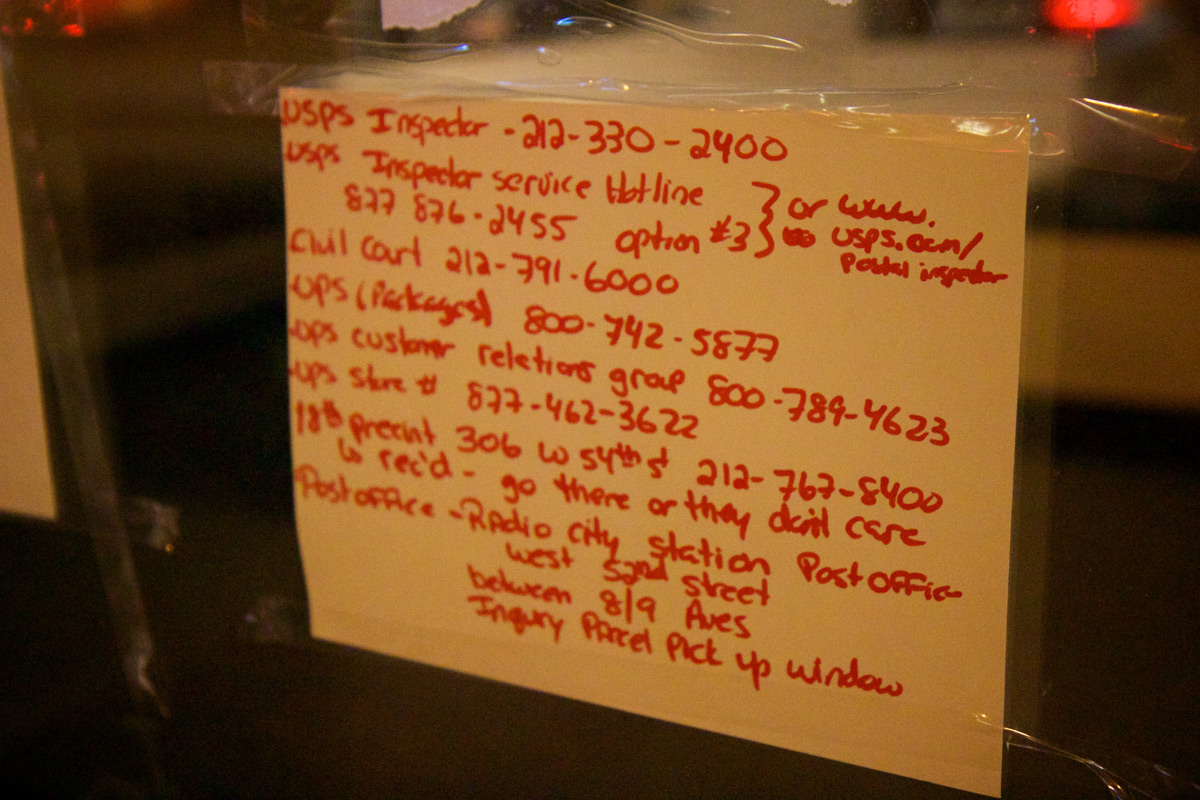 USPS Inspector - 212-330-2400
USPS Inspector service Hotline
877 876-2455 option #3 } or www.
usps.com/
Postal inspector
Civil Court 212-791-6000
UPS (Packages) 800-742-5877
UPS customer relations group 800-789-4623
UPS store # 877-462-3622
18th precint 306 W 54th st 212-767-8400
rec'd - go there or they don't care
Post office - Radio City Station Post Office
West 52nd street
between 8/9 Aves
Inqury Parcel Pick up window